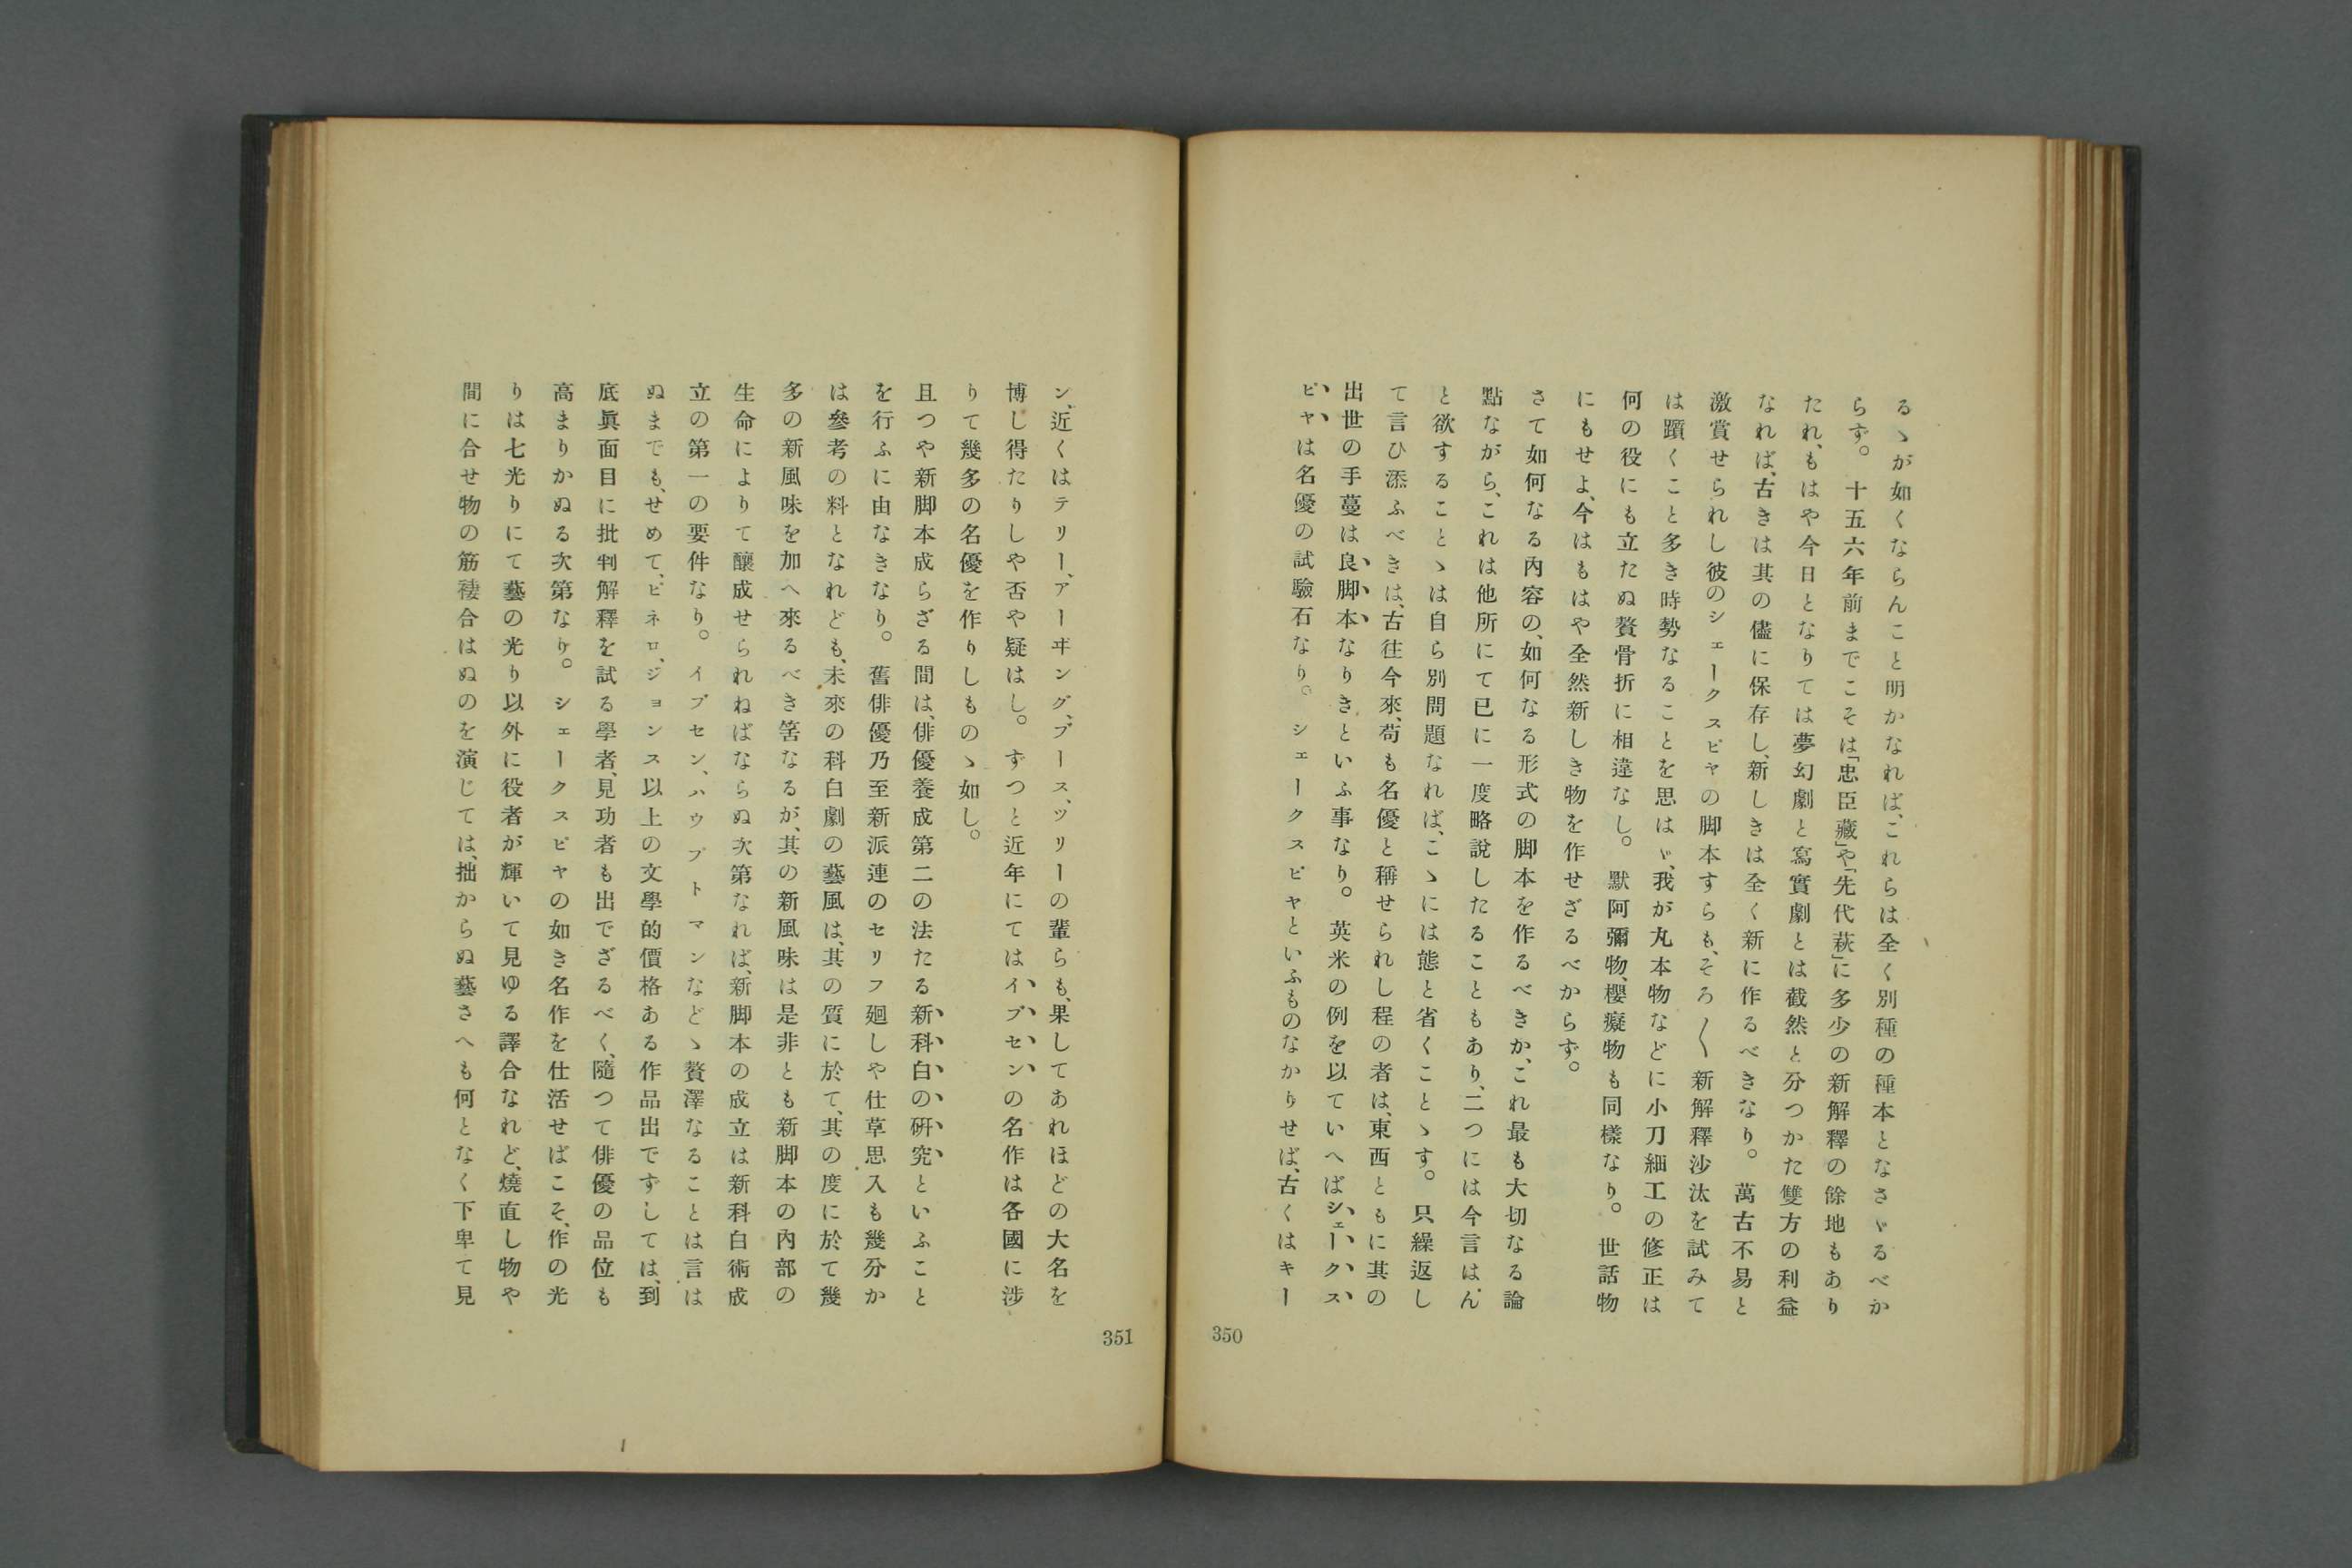 るゝが如くならんこと明かなれば、これらは全く別種の種本となさゞるべか
らず。十五六年前までこそは「忠臣藏」や「先代萩」に多少の新解釋の餘地もあり
たれ、もはや今日となりては夢幻劇と寫實劇とは截然と分つかた雙方の利益
なれば、古きは其の儘に保存し、新しきは全く新に作るべきなり。萬古不易と
激賞せられし彼のシェークスピヤの脚本すらも、そろ〱新解釋沙汰を試みて
は躓くこと多き時勢なることを思はゞ、我が丸本物などに小刀細工の修正は
何の役にも立たぬ贅骨折に相違なし。默阿彌物、櫻癡物も同樣なり。世話物
にもせよ、今はもはや全然新しき物を作せざるべからず。
さて如何なる內容の、如何なる形式の脚本を作るべきか、これ最も大切なる論
點ながら、これは他所にて已に一度略說したることもあり、二つには今言はん
と欲することゝは自ら別問題なれば、こゝには態と省くことゝす。只繰返し
て言ひ添ふべきは、古往今來、苟も名優と稱せられし程の者は、東西ともに其の
出世の手蔓は良脚本なりきといふ事なり。英米の例を以ていへばシェークス
ピヤは名優の試驗石なり。シェークスピヤといふものなかりせば、古くはキー
350
ン、近くはテリー、アーヰング、ブース、ツリーの輩らも、果してあれほどの大名を
博し得たりしや否や疑はし。ずつと近年にてはイブセンの名作は各國に涉
りて幾多の名優を作りしものゝ如し。
且つや新脚本成らざる間は、俳優養成第二の法たる新科白の硏究といふこと
を行ふに由なきなり。舊俳優乃至新派連のセリフ廻しや仕草思入も幾分か
は參考の料となれども、未來の科白劇の藝風は、其の質に於て、其の度に於て幾
多の新風味を加へ來るべき筈なるが、其の新風味は是非とも新脚本の內部の
生命によりて釀成せられねばならぬ次第なれば、新脚本の成立は新科白術成
立の第一の要件なり。イブセン、ハウプトマンなどゝ贅澤なることは言は
ぬまでも、せめて、ピネロ、ジョンス以上の文學的價格ある作品出でずしては、到
底眞面目に批判解釋を試る學者、見功者も出でざるべく、隨つて俳優の品位も
高まりかぬる次第なり。シェークスピヤの如き名作を仕活せばこそ、作の光
りは七光りにて藝の光り以外に役者が輝いて見ゆる譯合なれど、燒直し物や
間に合せ物の筋褄合はぬのを演じては、拙からぬ藝さへも何となく下卑て見
351